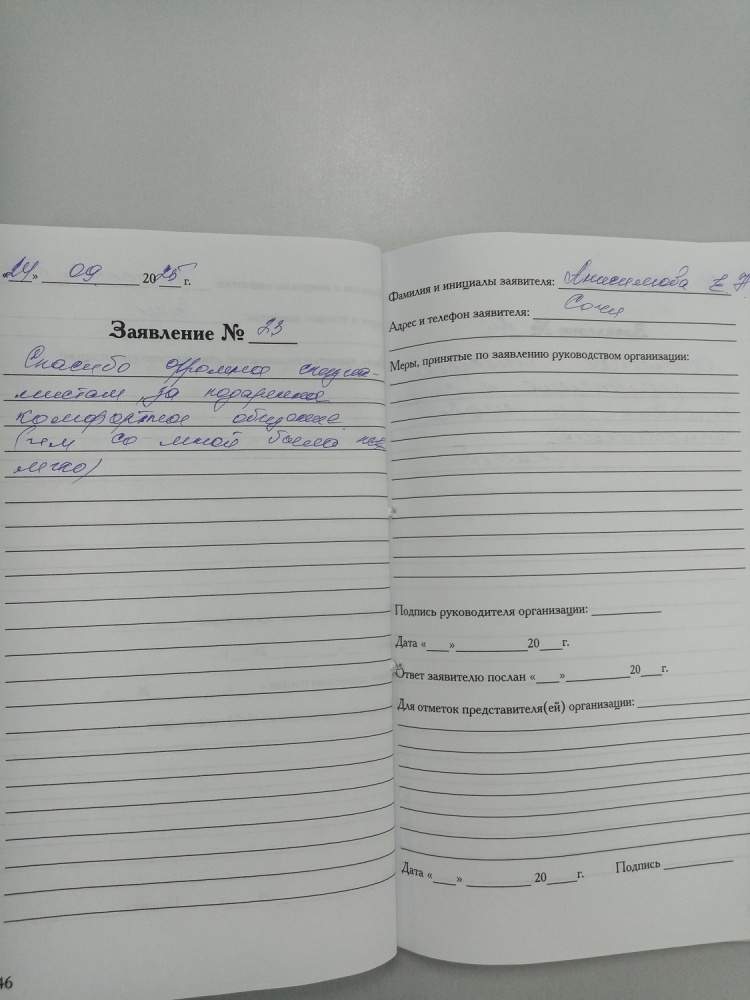 «24» 09 2025 г.
Заявление № 23
Спасибо огромное специа-
листам за подаренное
комфортное общение
(чем со мной было не
легко)
46
Фамилия и инициалы заявителя: Анисимова Е Н
Адрес и телефон заявителя: Сочи
Меры, принятые по заявлению руководством организации:
Подпись руководителя организации:
Дата «___»__________20___г.
Ответ заявителю послан «___»__________20___г.
Для отметок представителя(ей) организации:
Дата «___» __________ 20____г. Подпись __________